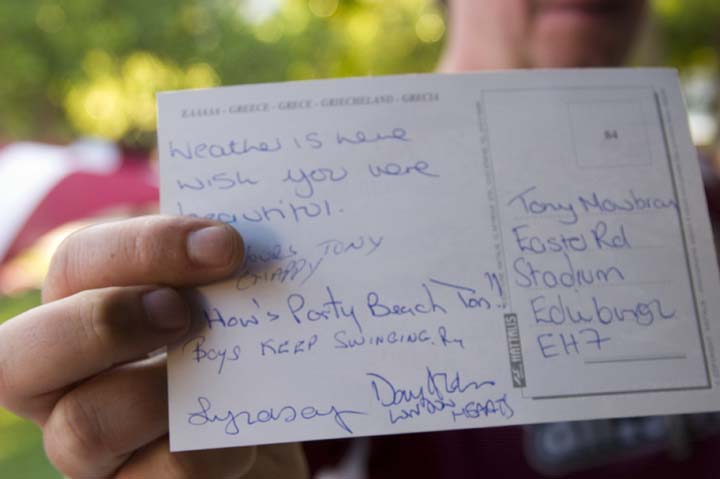 ΕΛΛΑΔΑ - GREECE - GRECE - GRIECHELAND - GRECIA
Weather is here
wish you were
beautiful.
TONY
CHAPPY
How's Party Beach Ton!!
BOYS KEEP SWINGING.
LONDON HEARTS
84
HAITALIS
Tony Mowbray
Easter Rd
Stadium
Edinburgh
EH7